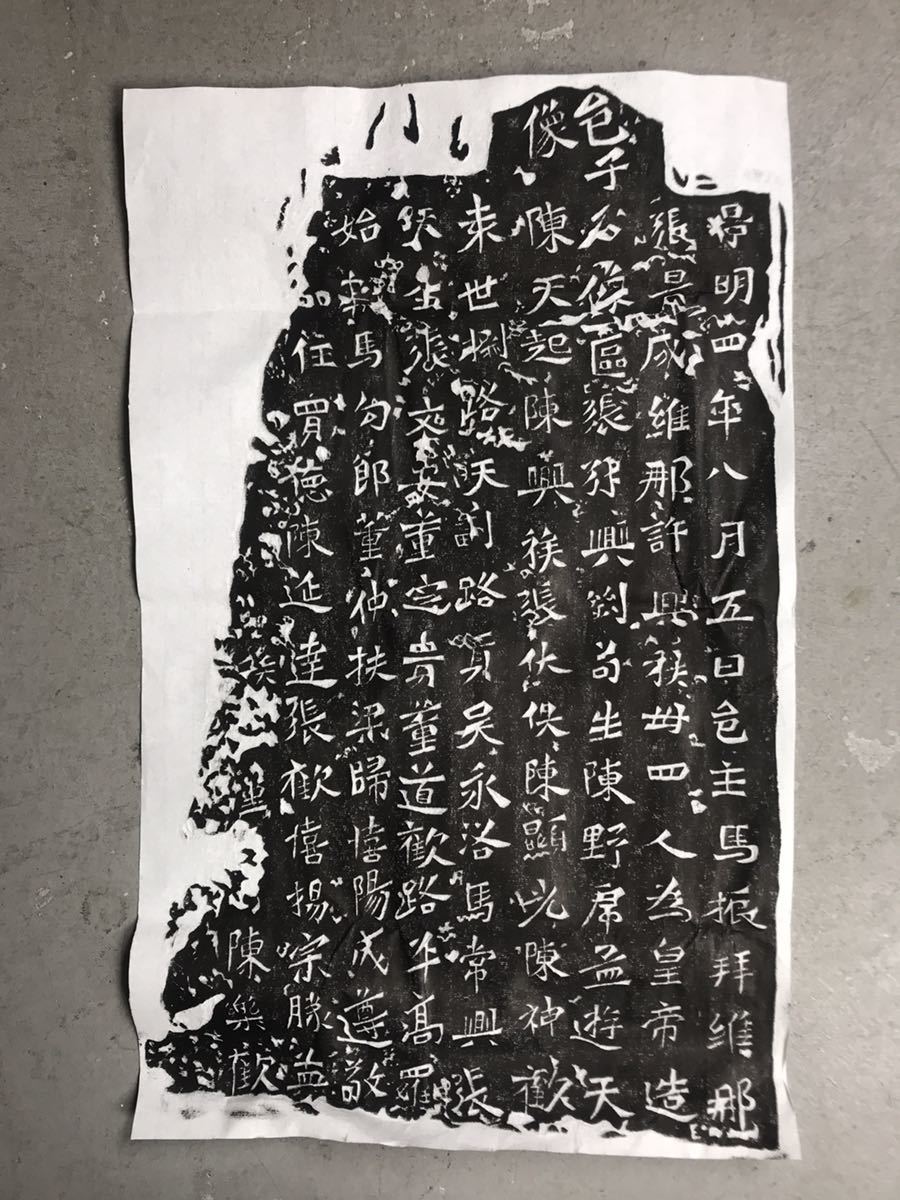 景明四年八月五日邑主馬振拜維那
張景成維那許興族卅四人為皇帝造
邑子張引興劉苟生陳野席孟遊天
像陳天起陳興族張伏俱陳顯光陳神歡
来世路天副路買吳永洛馬常興張
生張文安董定貴董道歡路平高羅
始馬勾郎董仲扶梁歸憘陽成遵敬
買德陳延達張歡憘揚宗勝孟
陳樂歡